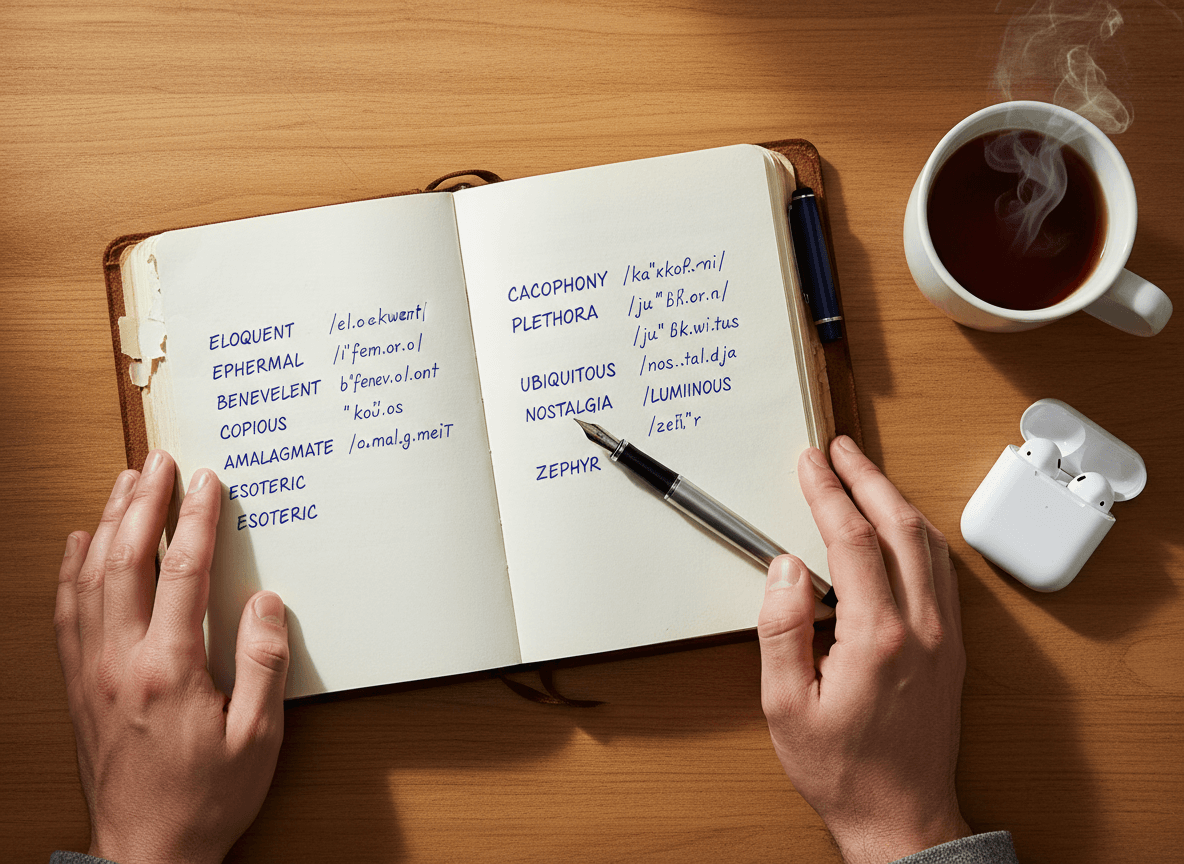 ELOQUENT /el.o.ekwent/
EPHERMAL /i"fem.or.o/
BENEVELENT b"fenev.ol.ont
COPIOUS "koü.os
AMALAGMATE /o.mal.g.meiT
ESOTERIC
ESOTERIC
CACOPHONY
PLETHORA
/ju" Bk.wi.tus
UBIQUITOUS /nos..tal.dja
NOSTALGIA /LUMIINOUS
ZEPHYR